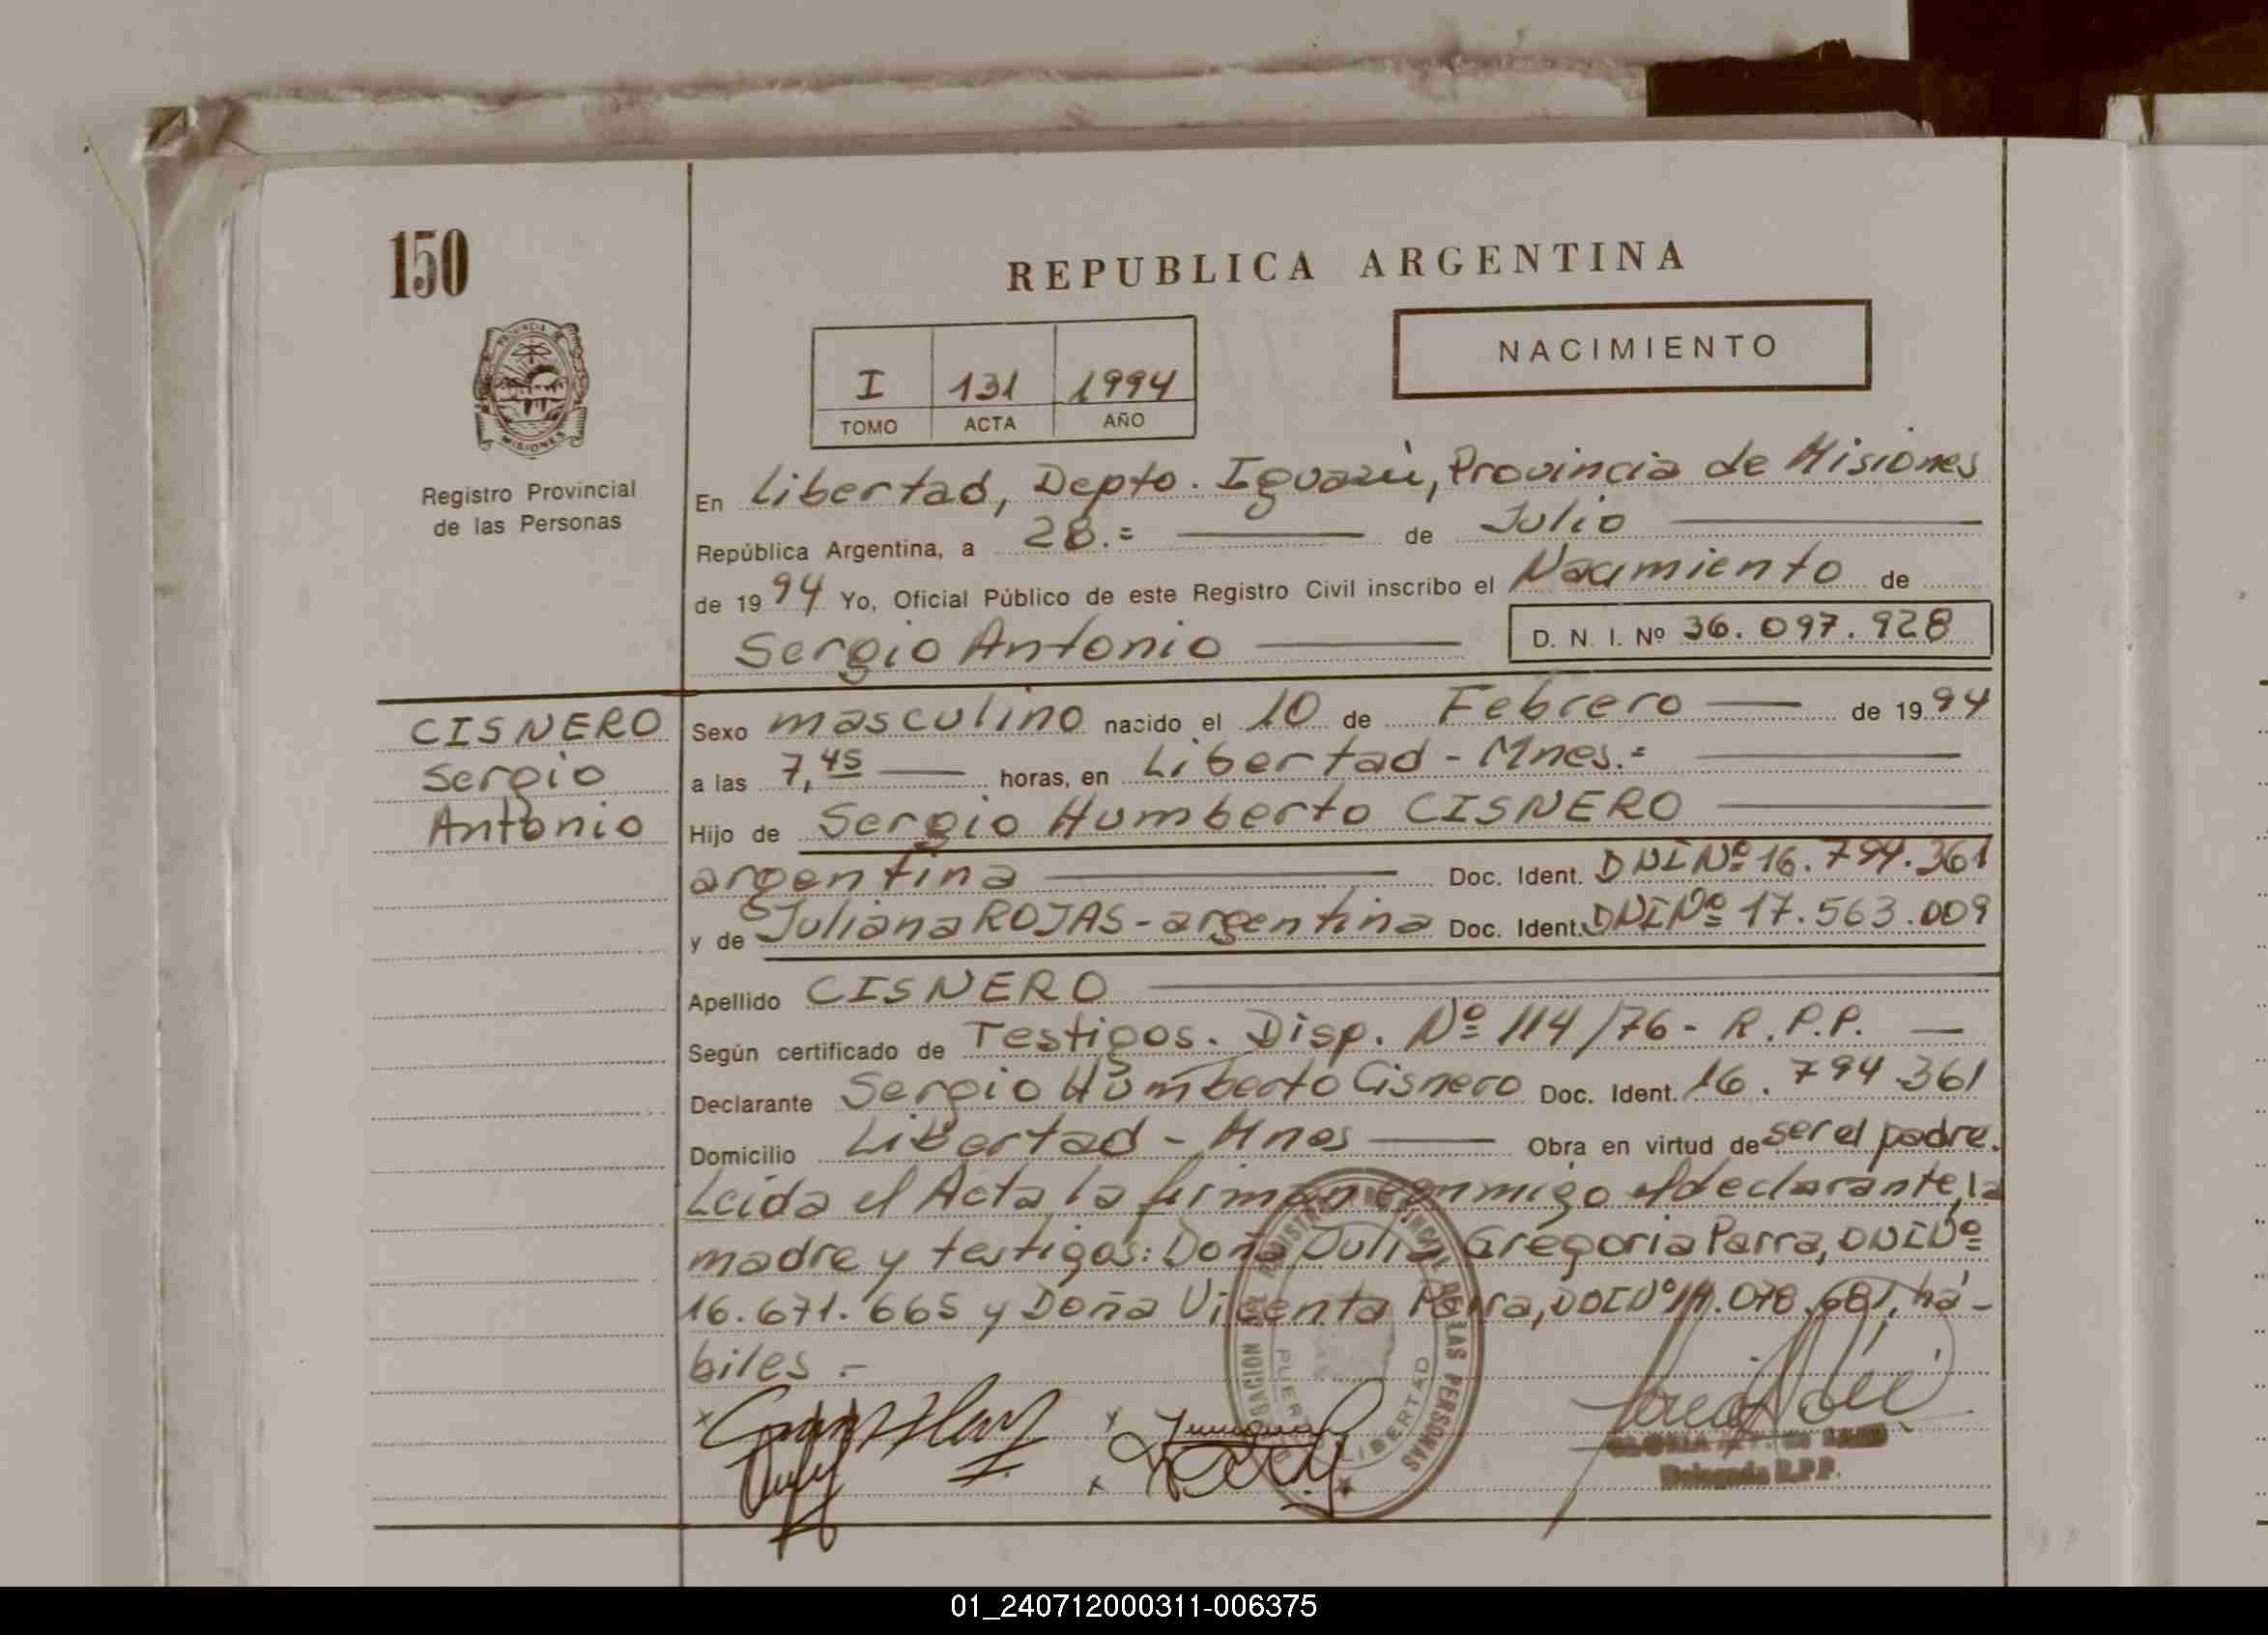 150
REPUBLICA ARGENTINA
NACIMIENTO
I 131 1994
TOMO ACTA AÑO
PROVINCIA DE
MISIONES
Registro Provincial
de las Personas
En Libertad, Depto. Iguazú, Provincia de Misiones
República Argentina, a 28.= de Julio
de 1994 Yo, Oficial Público de este Registro Civil inscribo el Nacimiento de
Sergio Antonio D. N. I. Nº 36.097.928
CISNERO
Sergio
Antonio
Sexo masculino nacido el 10 de Febrero de 1994
a las 7,45 horas, en Libertad - Mnes.=
Hijo de Sergio Humberto CISNERO
argentina Doc. Ident. DNI Nº 16.794.361
y de Juliana ROJAS - argentina Doc. Ident. DNI Nº 17.563.009
Apellido CISNERO
Según certificado de Testigos. Disp. Nº 114/76 - R.P.P.
Declarante Sergio Humberto Cisnero Doc. Ident. 16.794.361
Domicilio Libertad - Mnes Obra en virtud de ser el padre.
Leída el Acta la firman conmigo el declarante, la
madre y testigos: Doña Julia Gregoria Parra, DNI Nº
16.671.665 y Doña Vicenta Parra, há-
biles.-
REGISTRO PROVINCIAL DE LAS PERSONAS
LIBERTAD
Delegada R.P.P.
01_240712000311-006375